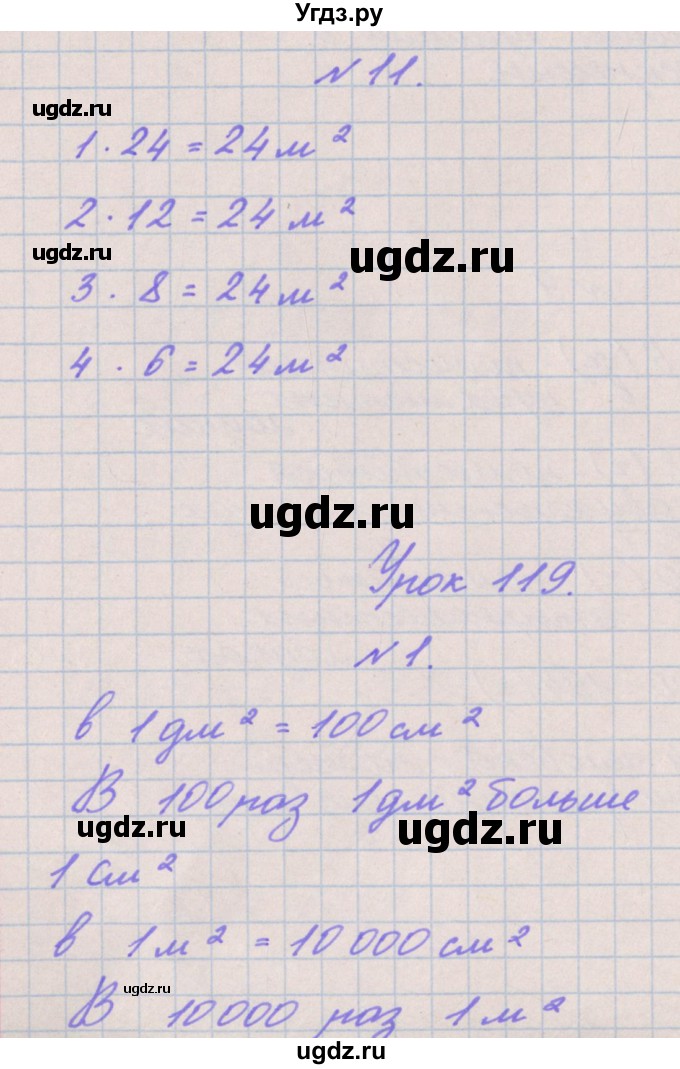 Угдз.ру
№ 11.
ugdz.ru
1 · 24 = 24 м²
2 · 12 = 24 м²
ugdz.ru
ugdz.ru
3 · 8 = 24 м²
4 · 6 = 24 м²
ugdz.ru
Урок 119.
№ 1.
в 1 дм² = 100 см²
В 100 раз 1 дм² больше
ugdz.ru
ugdz.ru
1 см²
в 1 м² = 10 000 см²
ugdz.ru
В 10000 раз 1 м²
ugdz.ru